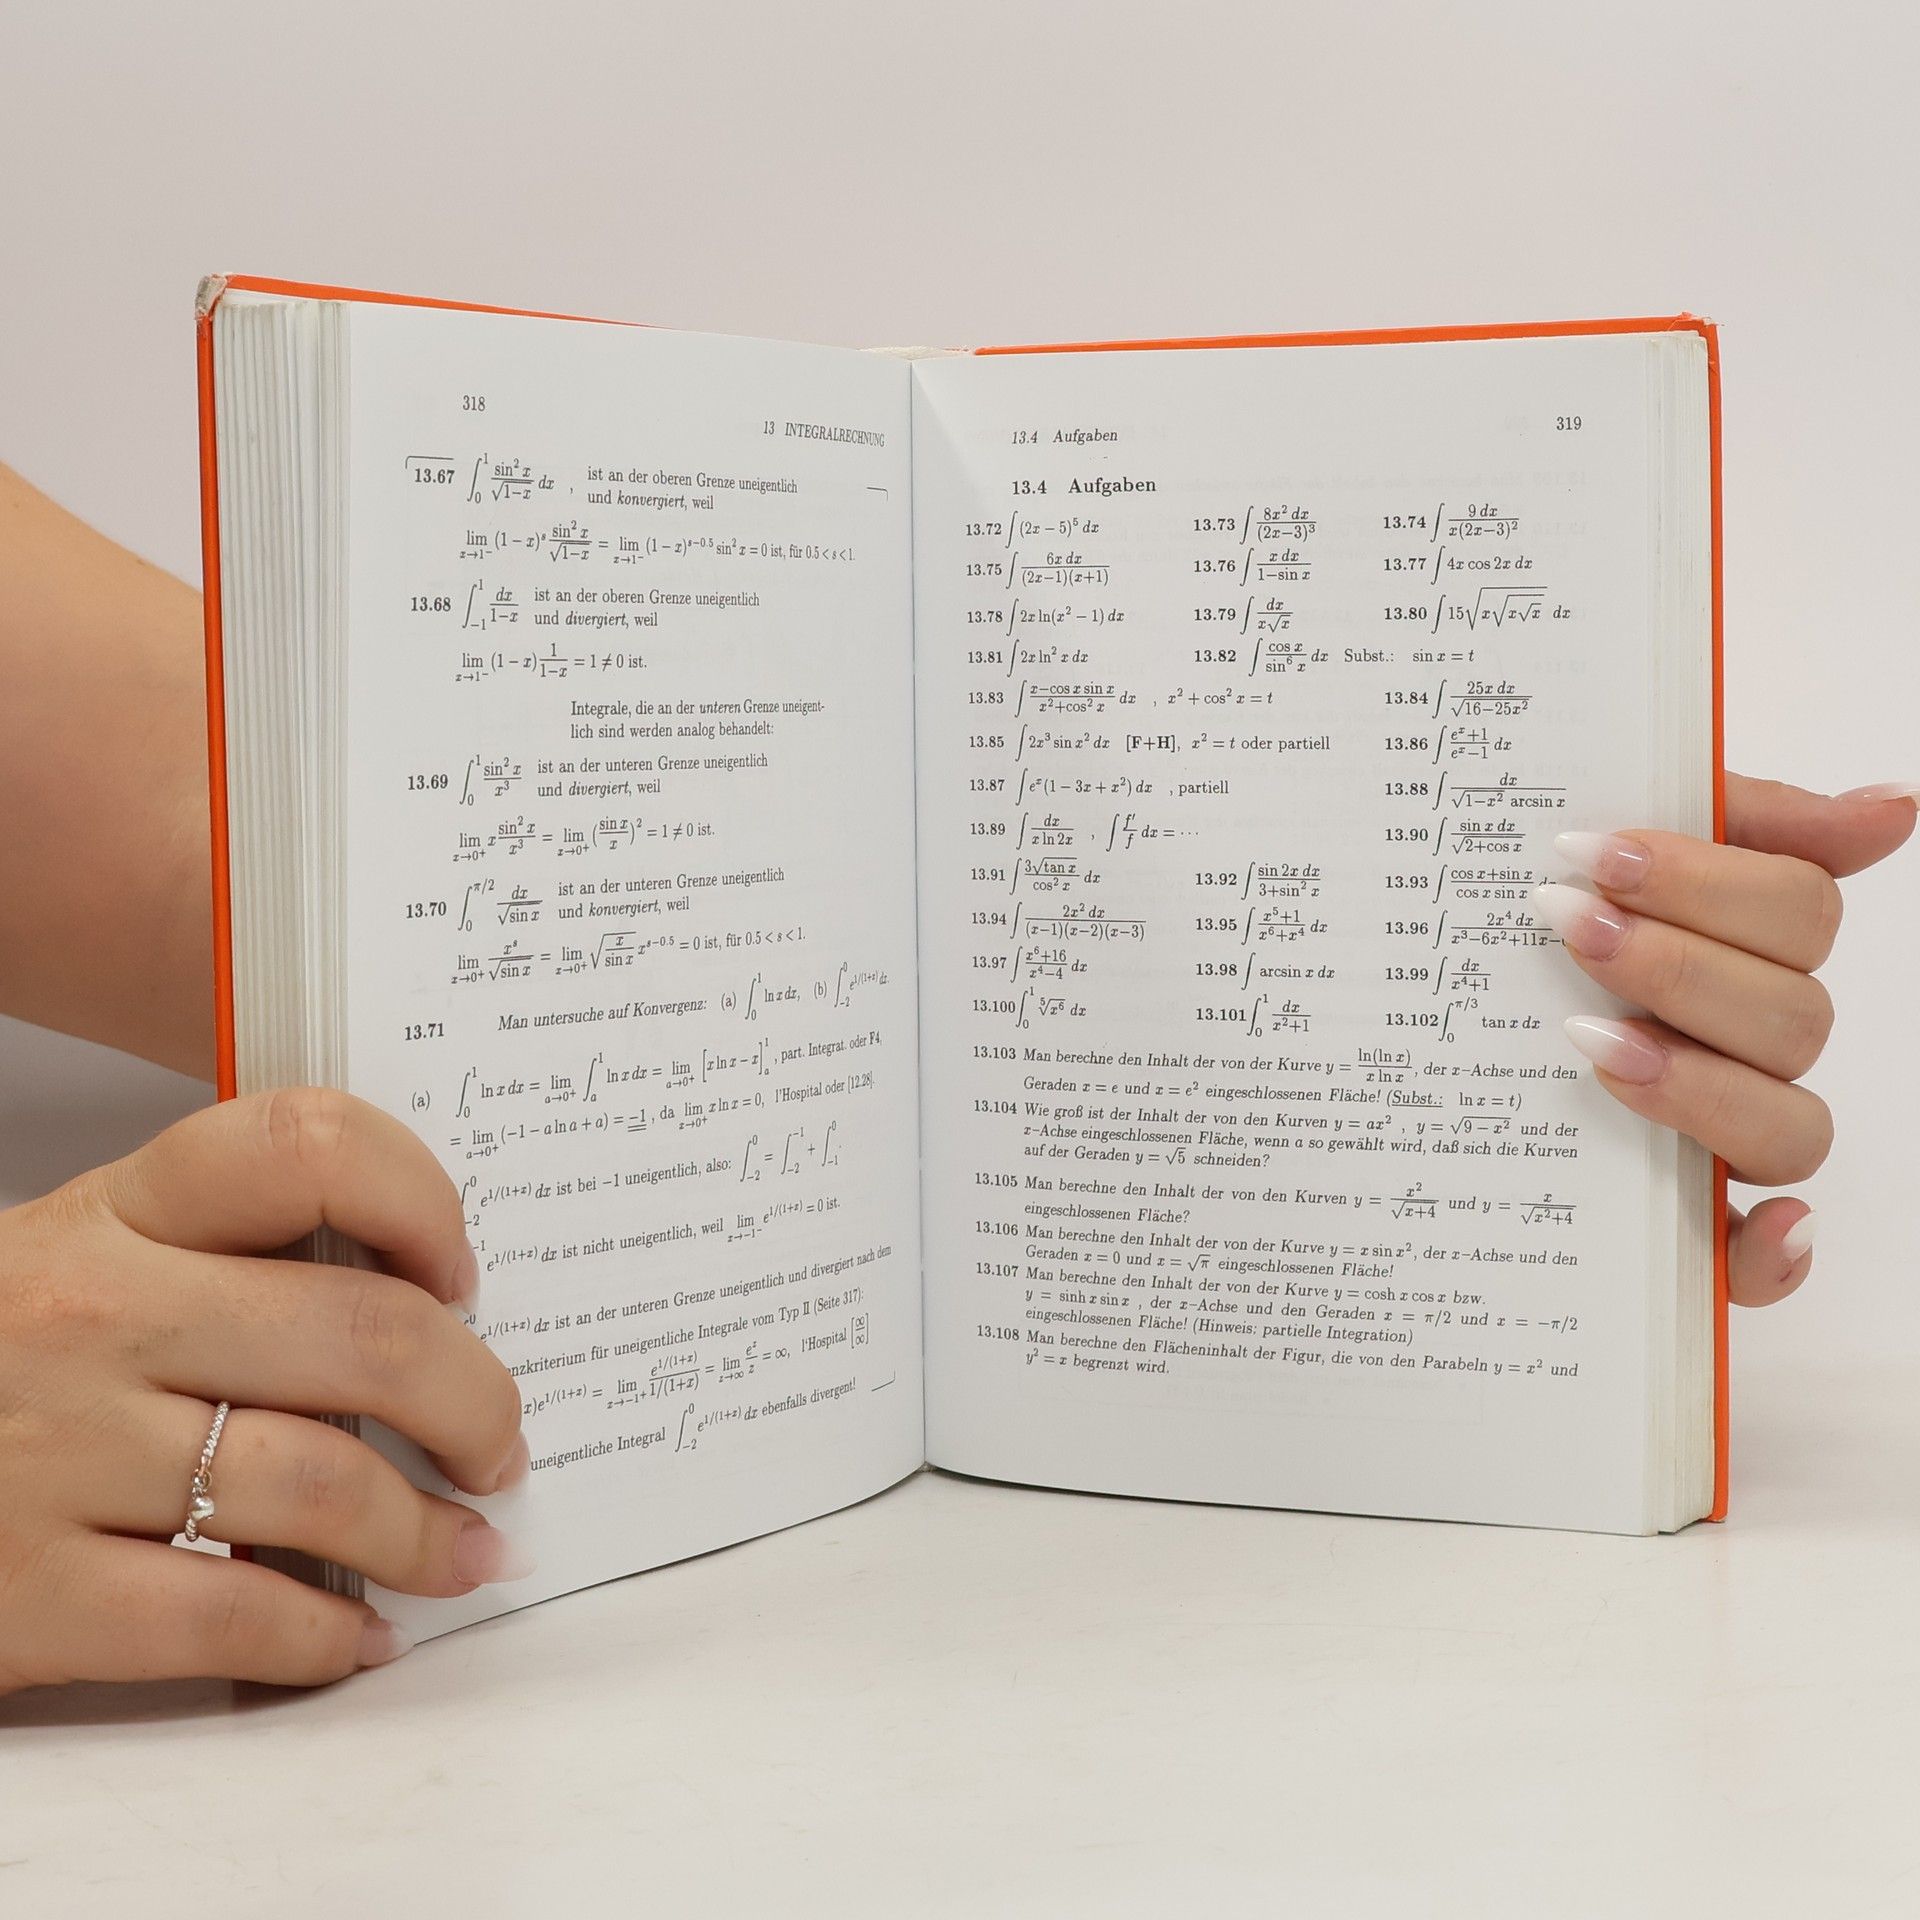 318
13 INTEGRALRECHNUNG
13.67 ∫₀¹ sin² x / √(1−x) dx , ist an der oberen Grenze uneigentlich
und konvergiert, weil
lim_{x→1⁻} (1 − x)ˢ sin² x / √(1−x) = lim_{x→1⁻} (1 − x)^{s−0.5} sin² x = 0 ist, für 0.5 < s < 1.
13.68 ∫₋₁¹ dx / (1−x) ist an der oberen Grenze uneigentlich
und divergiert, weil
lim_{x→1⁻} (1 − x) 1/(1−x) = 1 ≠ 0 ist.
Integrale, die an der unteren Grenze uneigent-
lich sind werden analog behandelt:
13.69 ∫₀¹ sin² x / x³ ist an der unteren Grenze uneigentlich
und divergiert, weil
lim_{x→0⁺} x sin² x / x³ = lim_{x→0⁺} (sin x / x)² = 1 ≠ 0 ist.
13.70 ∫₀^{π/2} dx / √(sin x) ist an der unteren Grenze uneigentlich
und konvergiert, weil
lim_{x→0⁺} xˢ / √(sin x) = lim_{x→0⁺} √(x / sin x) x^{s−0.5} = 0 ist, für 0.5 < s < 1.
13.71 Man untersuche auf Konvergenz: (a) ∫₀¹ ln x dx, (b) ∫₋₂⁰ e^{1/(1+x)} dx.
(a) ∫₀¹ ln x dx = lim_{a→0⁺} ∫ₐ¹ ln x dx = lim_{a→0⁺} [x ln x − x]ₐ¹ , part. Integrat. oder F4,
= lim_{a→0⁺} (−1 − a ln a + a) = −1 , da lim_{x→0⁺} x ln x = 0, l'Hospital oder [12.28].
∫₋₂⁰ e^{1/(1+x)} dx ist bei −1 uneigentlich, also: ∫₋₂⁰ = ∫₋₂⁻¹ + ∫₋₁⁰.
e^{1/(1+x)} dx ist nicht uneigentlich, weil lim_{x→−1⁻} e^{1/(1+x)} = 0 ist.
e^{1/(1+x)} dx ist an der unteren Grenze uneigentlich und divergiert nach dem
nzkriterium für uneigentliche Integrale vom Typ II (Seite 317):
x)e^{1/(1+x)} = lim_{x→−1⁺} e^{1/(1+x)} / (1/(1+x)) = lim_{z→∞} e^z / z = ∞, l'Hospital [∞/∞]
uneigentliche Integral ∫₋₂⁰ e^{1/(1+x)} dx ebenfalls divergent!
13.4 Aufgaben
319
13.4 Aufgaben
13.72 ∫(2x − 5)⁵ dx 13.73 ∫ 8x² dx / (2x−3)³ 13.74 ∫ 9 dx / (x(2x−3)²)
13.75 ∫ 6x dx / ((2x−1)(x+1)) 13.76 ∫ x dx / (1−sin x) 13.77 ∫ 4x cos 2x dx
13.78 ∫ 2x ln(x² − 1) dx 13.79 ∫ dx / (x√x) 13.80 ∫ 15√(x√(x√x)) dx
13.81 ∫ 2x ln² x dx 13.82 ∫ cos x / sin⁶ x dx Subst.: sin x = t
13.83 ∫ (x−cos x sin x) / (x²+cos² x) dx , x² + cos² x = t 13.84 ∫ 25x dx / √(16−25x²)
13.85 ∫ 2x³ sin x² dx [F+H], x² = t oder partiell 13.86 ∫ (eˣ+1) / (eˣ−1) dx
13.87 ∫ eˣ(1 − 3x + x²) dx , partiell 13.88 ∫ dx / (√(1−x²) arcsin x)
13.89 ∫ dx / (x ln 2x) , ∫ f′/f dx = ··· 13.90 ∫ sin x dx / √(2+cos x)
13.91 ∫ 3√(tan x) / cos² x dx 13.92 ∫ sin 2x dx / (3+sin² x) 13.93 ∫ (cos x+sin x) / (cos x sin x)
13.94 ∫ 2x² dx / ((x−1)(x−2)(x−3)) 13.95 ∫ (x⁵+1) / (x⁶+x⁴) dx 13.96 ∫ 2x⁴ dx / (x³−6x²+11x−
13.97 ∫ (x⁶+16) / (x⁴−4) dx 13.98 ∫ arcsin x dx 13.99 ∫ dx / (x⁴+1)
13.100 ∫₀¹ ⁵√(x⁶) dx 13.101 ∫₀¹ dx / (x²+1) 13.102 ∫₀^{π/3} tan x dx
13.103 Man berechne den Inhalt der von der Kurve y = ln(ln x) / (x ln x), der x–Achse und den
Geraden x = e und x = e² eingeschlossenen Fläche! (Subst.: ln x = t)
13.104 Wie groß ist der Inhalt der von den Kurven y = ax² , y = √(9 − x²) und der
x–Achse eingeschlossenen Fläche, wenn a so gewählt wird, daß sich die Kurven
auf der Geraden y = √5 schneiden?
13.105 Man berechne den Inhalt der von den Kurven y = x² / √(x+4) und y = x / √(x²+4)
eingeschlossenen Fläche?
13.106 Man berechne den Inhalt der von der Kurve y = x sin x², der x–Achse und den
Geraden x = 0 und x = √π eingeschlossenen Fläche!
13.107 Man berechne den Inhalt der von der Kurve y = cosh x cos x bzw.
y = sinh x sin x , der x–Achse und den Geraden x = π/2 und x = −π/2
eingeschlossenen Fläche! (Hinweis: partielle Integration)
13.108 Man berechne den Flächeninhalt der Figur, die von den Parabeln y = x² und
y² = x begrenzt wird.